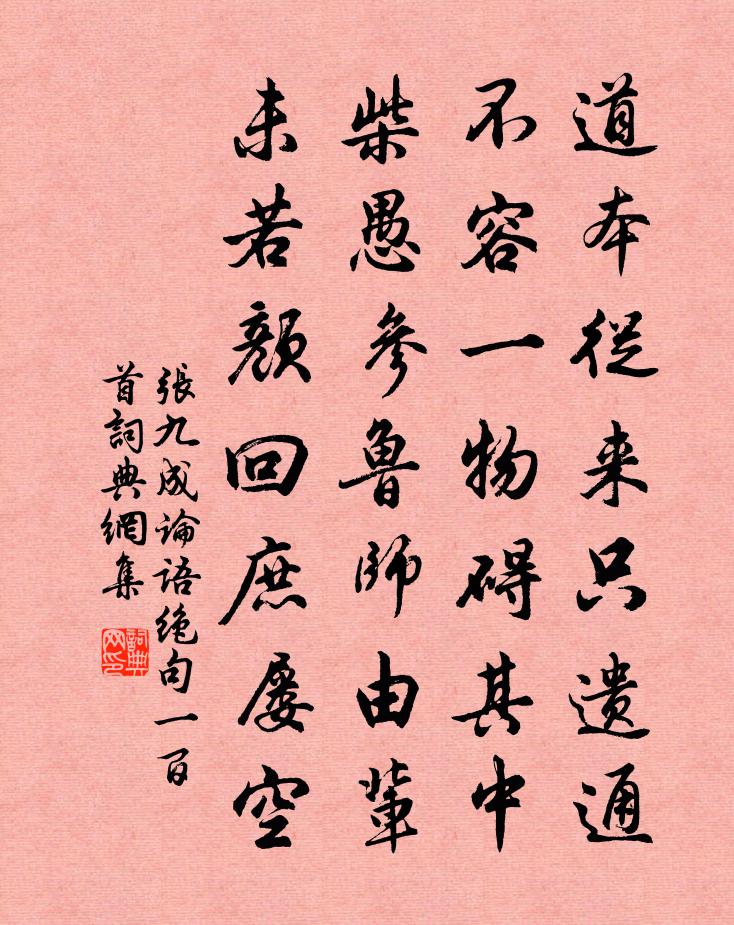 道本從来只遗通
不容一物碍其中
柴愚參鲁師由輩
未若顏回庶屡空
張九成論语绝句一百
首詞典網集
詞典网印